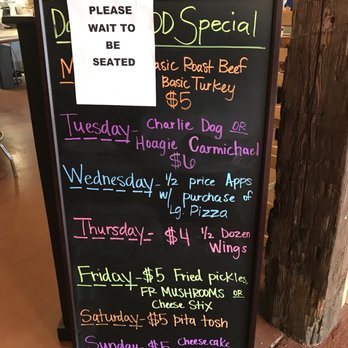 PLEASE
WAIT TO
BE
SEATED
Special
Basic Roast Beef
Basic Turkey
$5
Tuesday - Charlie Dog OR
Hoagie Carmichael
$6
Wednesday - 1/2 price Apps
w/ purchase of
Lg. Pizza
Thursday - $4 1/2 Dozen
Wings
Friday - $5 Fried pickles,
FR MUSHROOMS OR
Cheese Stix
Saturday - $5 pita tosh
Sunday - $5 Cheesecake